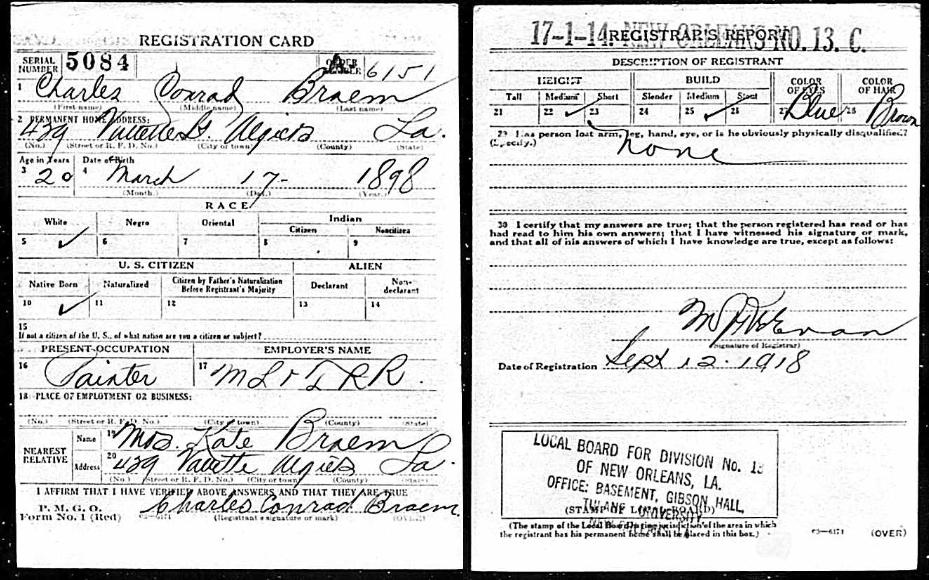 REGISTRATION CARD
SERIAL NUMBER 5084 ORDER NUMBER A 6151
1 Charles Conrad Braem
(First name) (Middle name) (Last name)
2 PERMANENT HOME ADDRESS:
429 Vallette St. Algiers La.
(No.) (Street or R. F. D. No.) (City or town) (County) (State)
Age in Years Date of Birth
3 20 4 March 17- 1898
(Month.) (Day.) (Year.)
RACE
White Negro Oriental Indian
Citizen Noncitizen
5 ✓ 6 7 8 9
U. S. CITIZEN ALIEN
Native Born Naturalized Citizen by Father's Naturalization Before Registrant's Majority Declarant Non-declarant
10 ✓ 11 12 13 14
15
If not a citizen of the U. S., of what nation are you a citizen or subject?
PRESENT OCCUPATION EMPLOYER'S NAME
16 Painter 17 M L & T R R.
18 PLACE OF EMPLOYMENT OR BUSINESS:
(No.) (Street or R. F. D. No.) (City or town) (County) (State)
NEAREST RELATIVE Name 19 Mrs. Kate Braem
Address 20 429 Vallette Algiers La.
(No.) (Street or R. F. D. No.) (City or town) (County) (State)
I AFFIRM THAT I HAVE VERIFIED ABOVE ANSWERS AND THAT THEY ARE TRUE
P. M. G. O.
Form No. 1 (Red) 03-6171 Charles Conrad Braem
(Registrant's signature or mark) (OVER)
17-1-14. NEW ORLEANS NO. 13. C.
REGISTRAR'S REPORT
DESCRIPTION OF REGISTRANT
HEIGHT BUILD COLOR OF EYES COLOR OF HAIR
Tall Medium Short Slender Medium Stout
21 22 ✓ 23 24 25 ✓ 26 27 Blue 28 Brown
29 Has person lost arm, leg, hand, eye, or is he obviously physically disqualified?
(Specify.) None
30 I certify that my answers are true; that the person registered has read or has
had read to him his own answers; that I have witnessed his signature or mark,
and that all of his answers of which I have knowledge are true, except as follows:
(Signature of Registrar)
Date of Registration Sept 12 1918
LOCAL BOARD FOR DIVISION No. 13
OF NEW ORLEANS, LA.
OFFICE: BASEMENT, GIBSON HALL,
TULANE UNIVERSITY
NEW ORLEANS, LA.
(STAMP OF LOCAL BOARD)
(The stamp of the Local Board having jurisdiction of the area in which
the registrant has his permanent home shall be placed in this box.) 03-6171 (OVER)